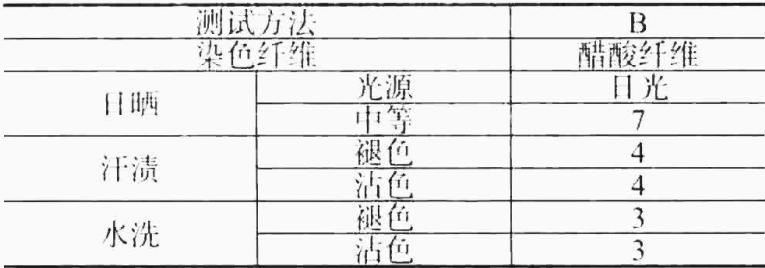 测试方法 B
染色纤维 醋酸纤维
日晒 光源 日光
中等 7
汗渍 褪色 4
沾色 4
水洗 褪色 3
沾色 3